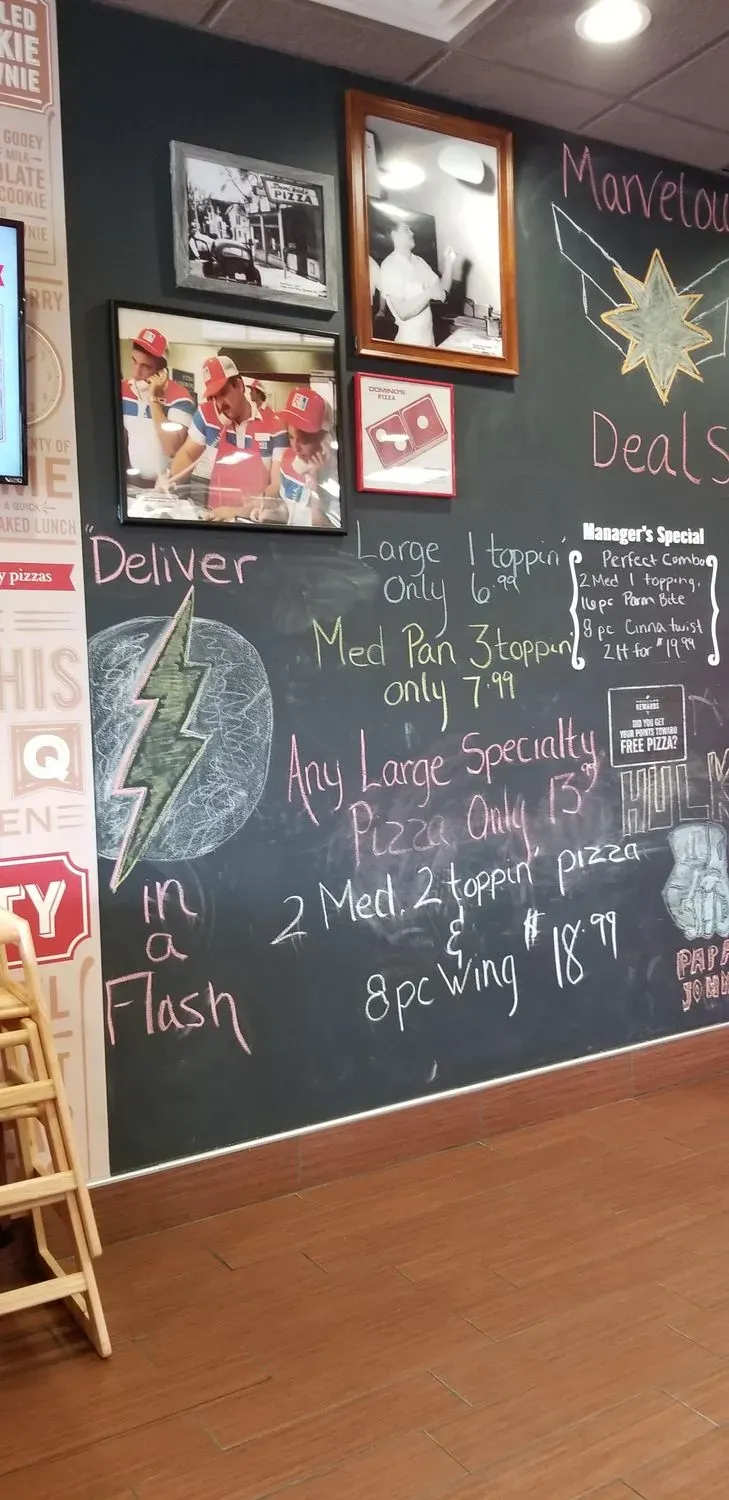 GOOEY
MILK
COOKIE
PIZZA
DOMINO'S
PIZZA
Deals
Manager's Special
Perfect Combo
2 Med 1 topping,
16pc Parm Bite
8 pc Cinna twist
2lt for $19.99
Large 1 toppin'
Only 6.99
Med Pan 3 toppin'
only 7.99
Any Large Specialty
Pizza Only 13.99
2 Med. 2 toppin' pizza
&
8pc Wing $18.99
"Deliver
in
a
Flash
REWARDS
DID YOU GET
YOUR POINTS TOWARD
FREE PIZZA?
HULK
y pizzas
OF
A QUICK
LUNCH
HIS
Q
EN
TY